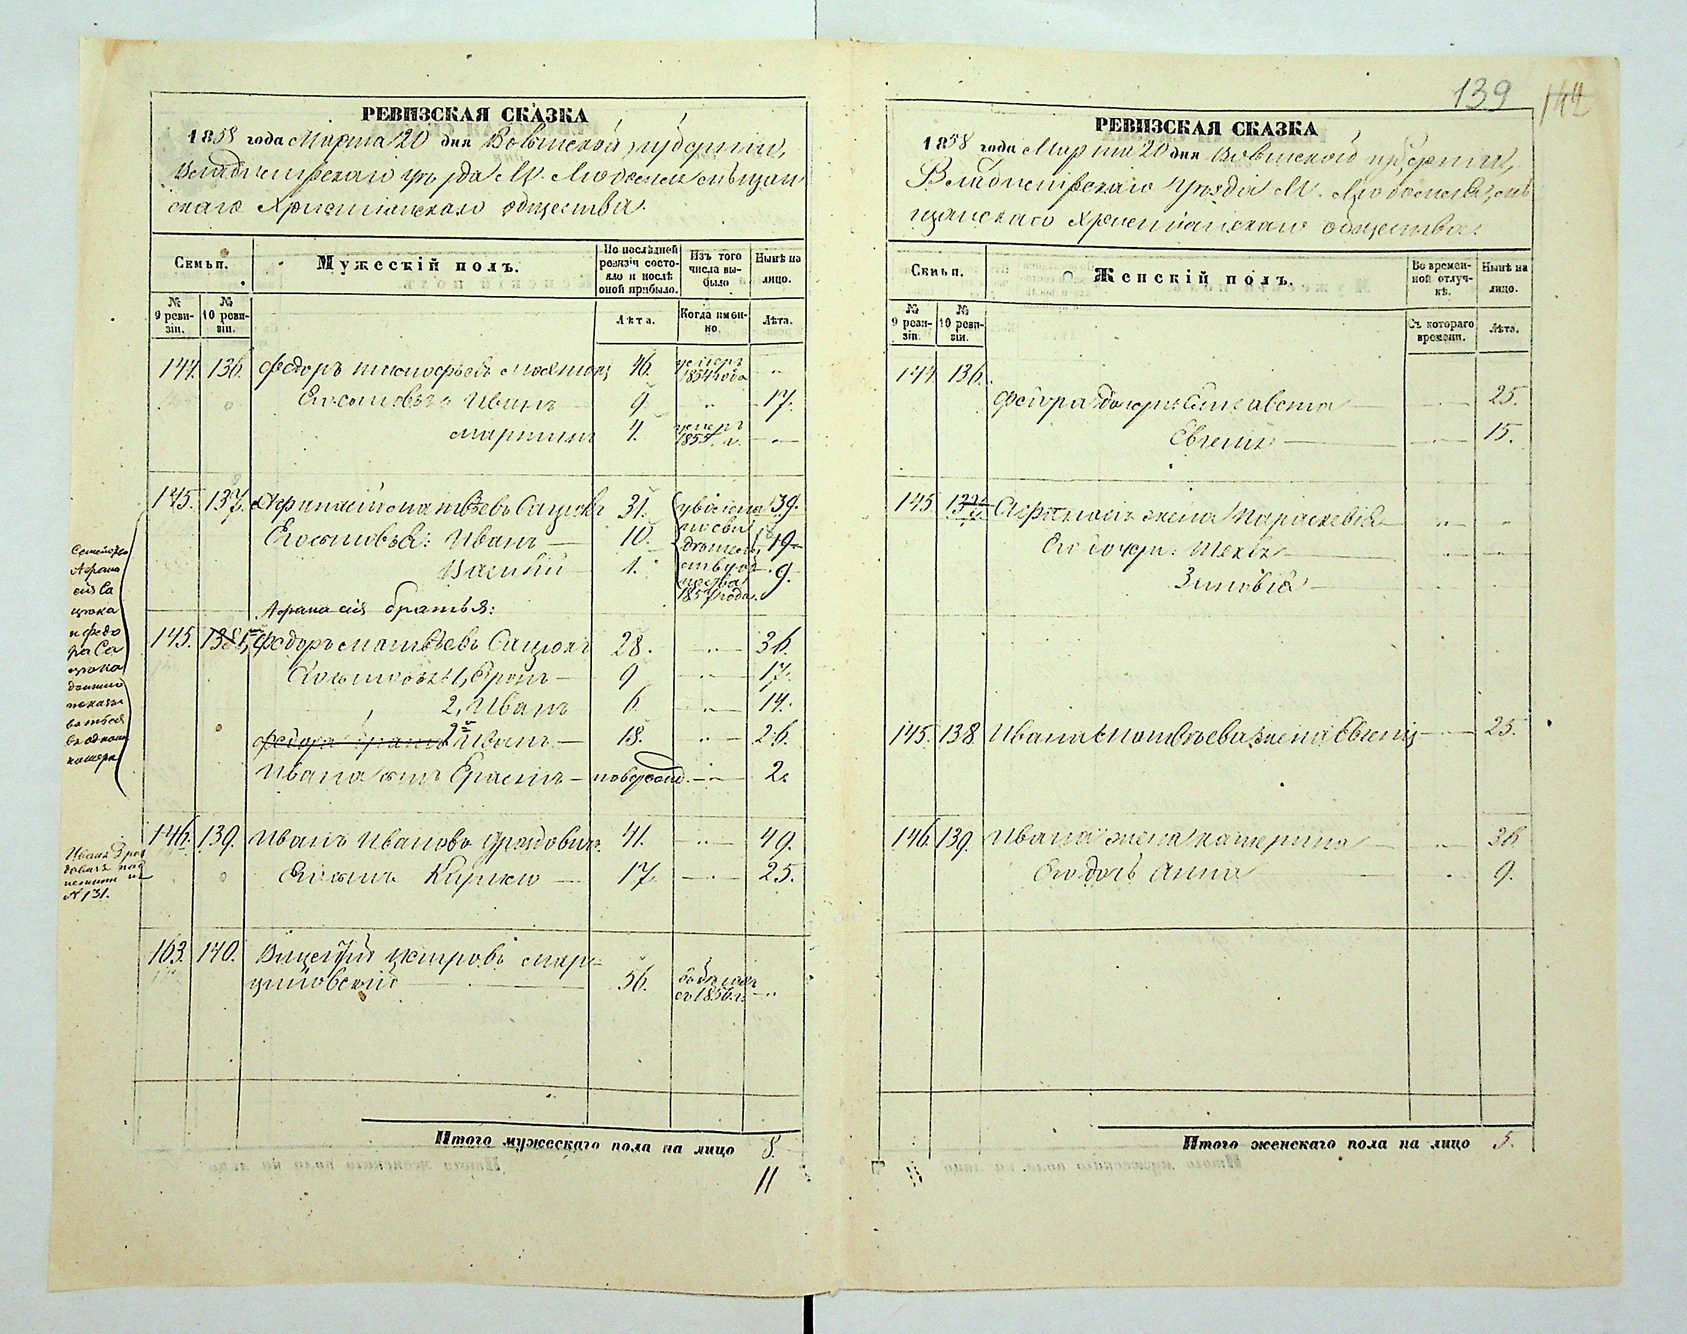 139
РЕВИЗСКАЯ СКАЗКА
1858 года Марта 20 дня Волынской губерніи,
Владимірскаго уѣзда М. Любомля мѣщан
скаго Христіанскаго общества.
Семьи.
Мужескій полъ.
По послѣдней ревизіи состояло и послѣ оной прибыло.
Изъ того числа выбыло
Нынѣ на лицо.
№ 9 ревизіи.
№ 10 ревизіи.
Лѣта.
Когда именно.
Лѣта.
144. 136. Федоръ 46. умеръ 1854 года „
Его сыновья: Иванъ 9. „ 17.
Мартинъ 4. умеръ „
145. 137. Афанасій Матвѣевъ Сацюкъ 31. 39.
Его сыновья: Иванъ 10. 19
Василій 1. 9.
1857 года.
Афанасія братья:
145. 138 Федоръ Матвѣевъ Сацюкъ 28. „ 36.
Его сыновья: 1, 9 „ 17.
2, Иванъ 6 „ 14.
2й Иванъ 18. „ 26.
Ивана сынъ Герасимъ новорожд. „ 2.
Семейство Афанасія Сацюка и Федора Сацюка должно показываться въ одномъ номерѣ
146. 139. Иванъ Ивановъ 41. „ 49.
Его сынъ Кирило 17. „ 25.
Иванъ
№ 131.
163. 140. Петровъ Мар-
циновскій 56. съ 1856 г. „
Итого мужескаго пола на лицо 8.
11
РЕВИЗСКАЯ СКАЗКА
1858 года Марта 20 дня Волынской губерніи,
Владимірскаго уѣзда М. Любомля, мѣ
щанскаго Христіанскаго общества.
Семьи.
Женскій полъ.
Во временной отлучкѣ.
Нынѣ на лицо.
№ 9 ревизіи.
№ 10 ревизіи.
Съ котораго времени.
Лѣта.
144 136.
Федора дочери: Елисавета „ 25.
Евгенія „ 15.
145 137 Афанасія жена Параскевія „ „
Его дочери: Текля „ „
Зиновія „
145. 138 Ивана Матвѣева жена Евгенія „ 25.
146. 139. Ивана жена Катерина „ 36
Его дочь Анна „ 9.
Итого женскаго пола на лицо 5.